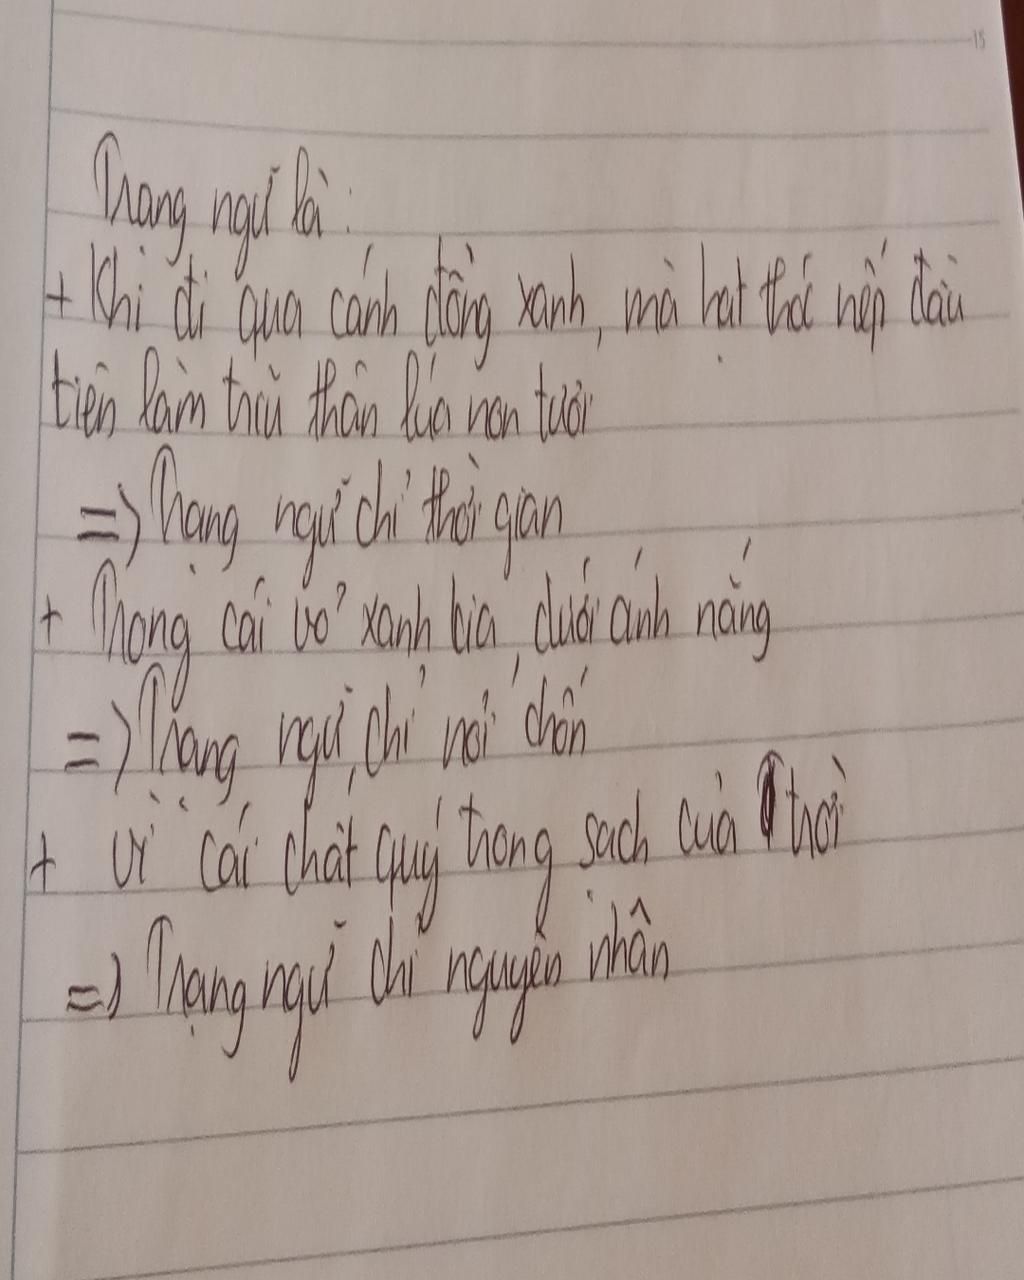 15
Trang ngữ là:
+ Khi đi qua cánh đồng xanh, mà hạt thóc nếp đầu
tiên làm trĩu thân lúa non tươi
=> Trạng ngữ chỉ thời gian
+ Trong cái vỏ xanh kia, dưới ánh nắng
=> Trạng ngữ chỉ nơi chốn
+ Vì cái chất quý trong sạch của trời
=> Trạng ngữ chỉ nguyên nhân